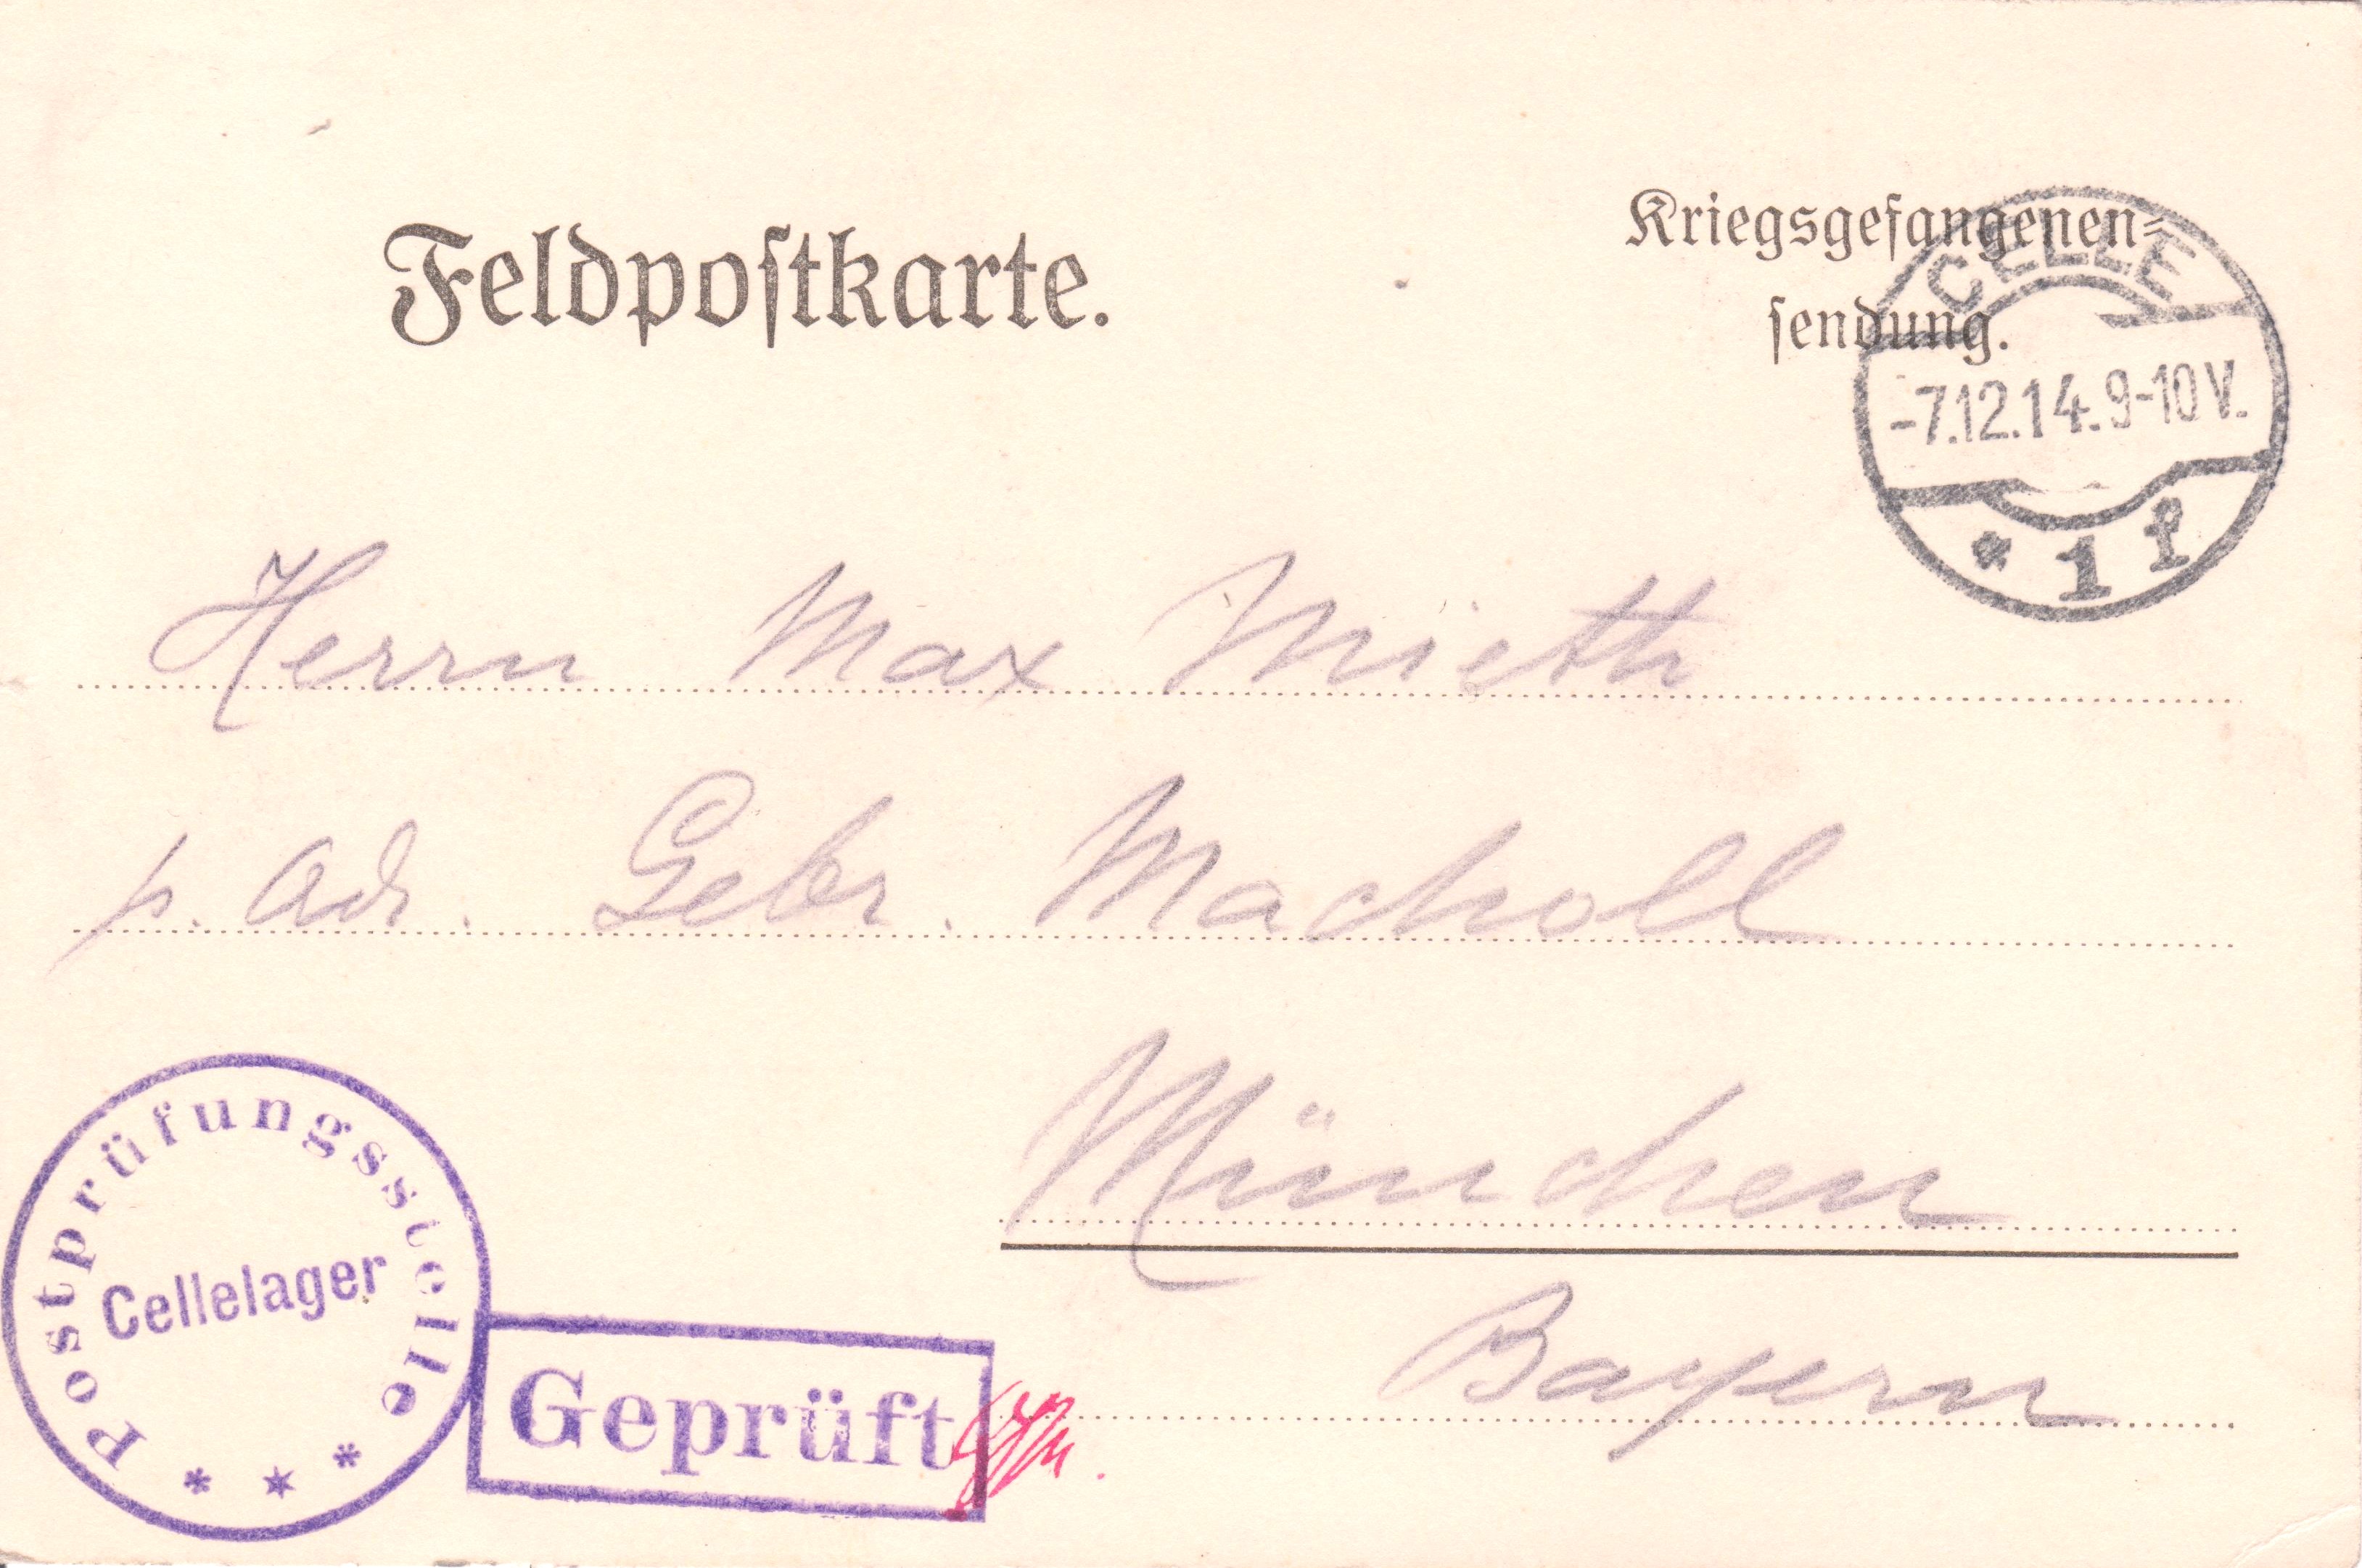 Feldpostkarte.
Kriegsgefangenen-
sendung.
CELLE
-7.12.14. 9-10 V.
* 1 f
Herrn Max Mieth
p. Adr. Gebr. Macholl
München
Bayern
Postprüfungsstelle
Cellelager
Geprüft